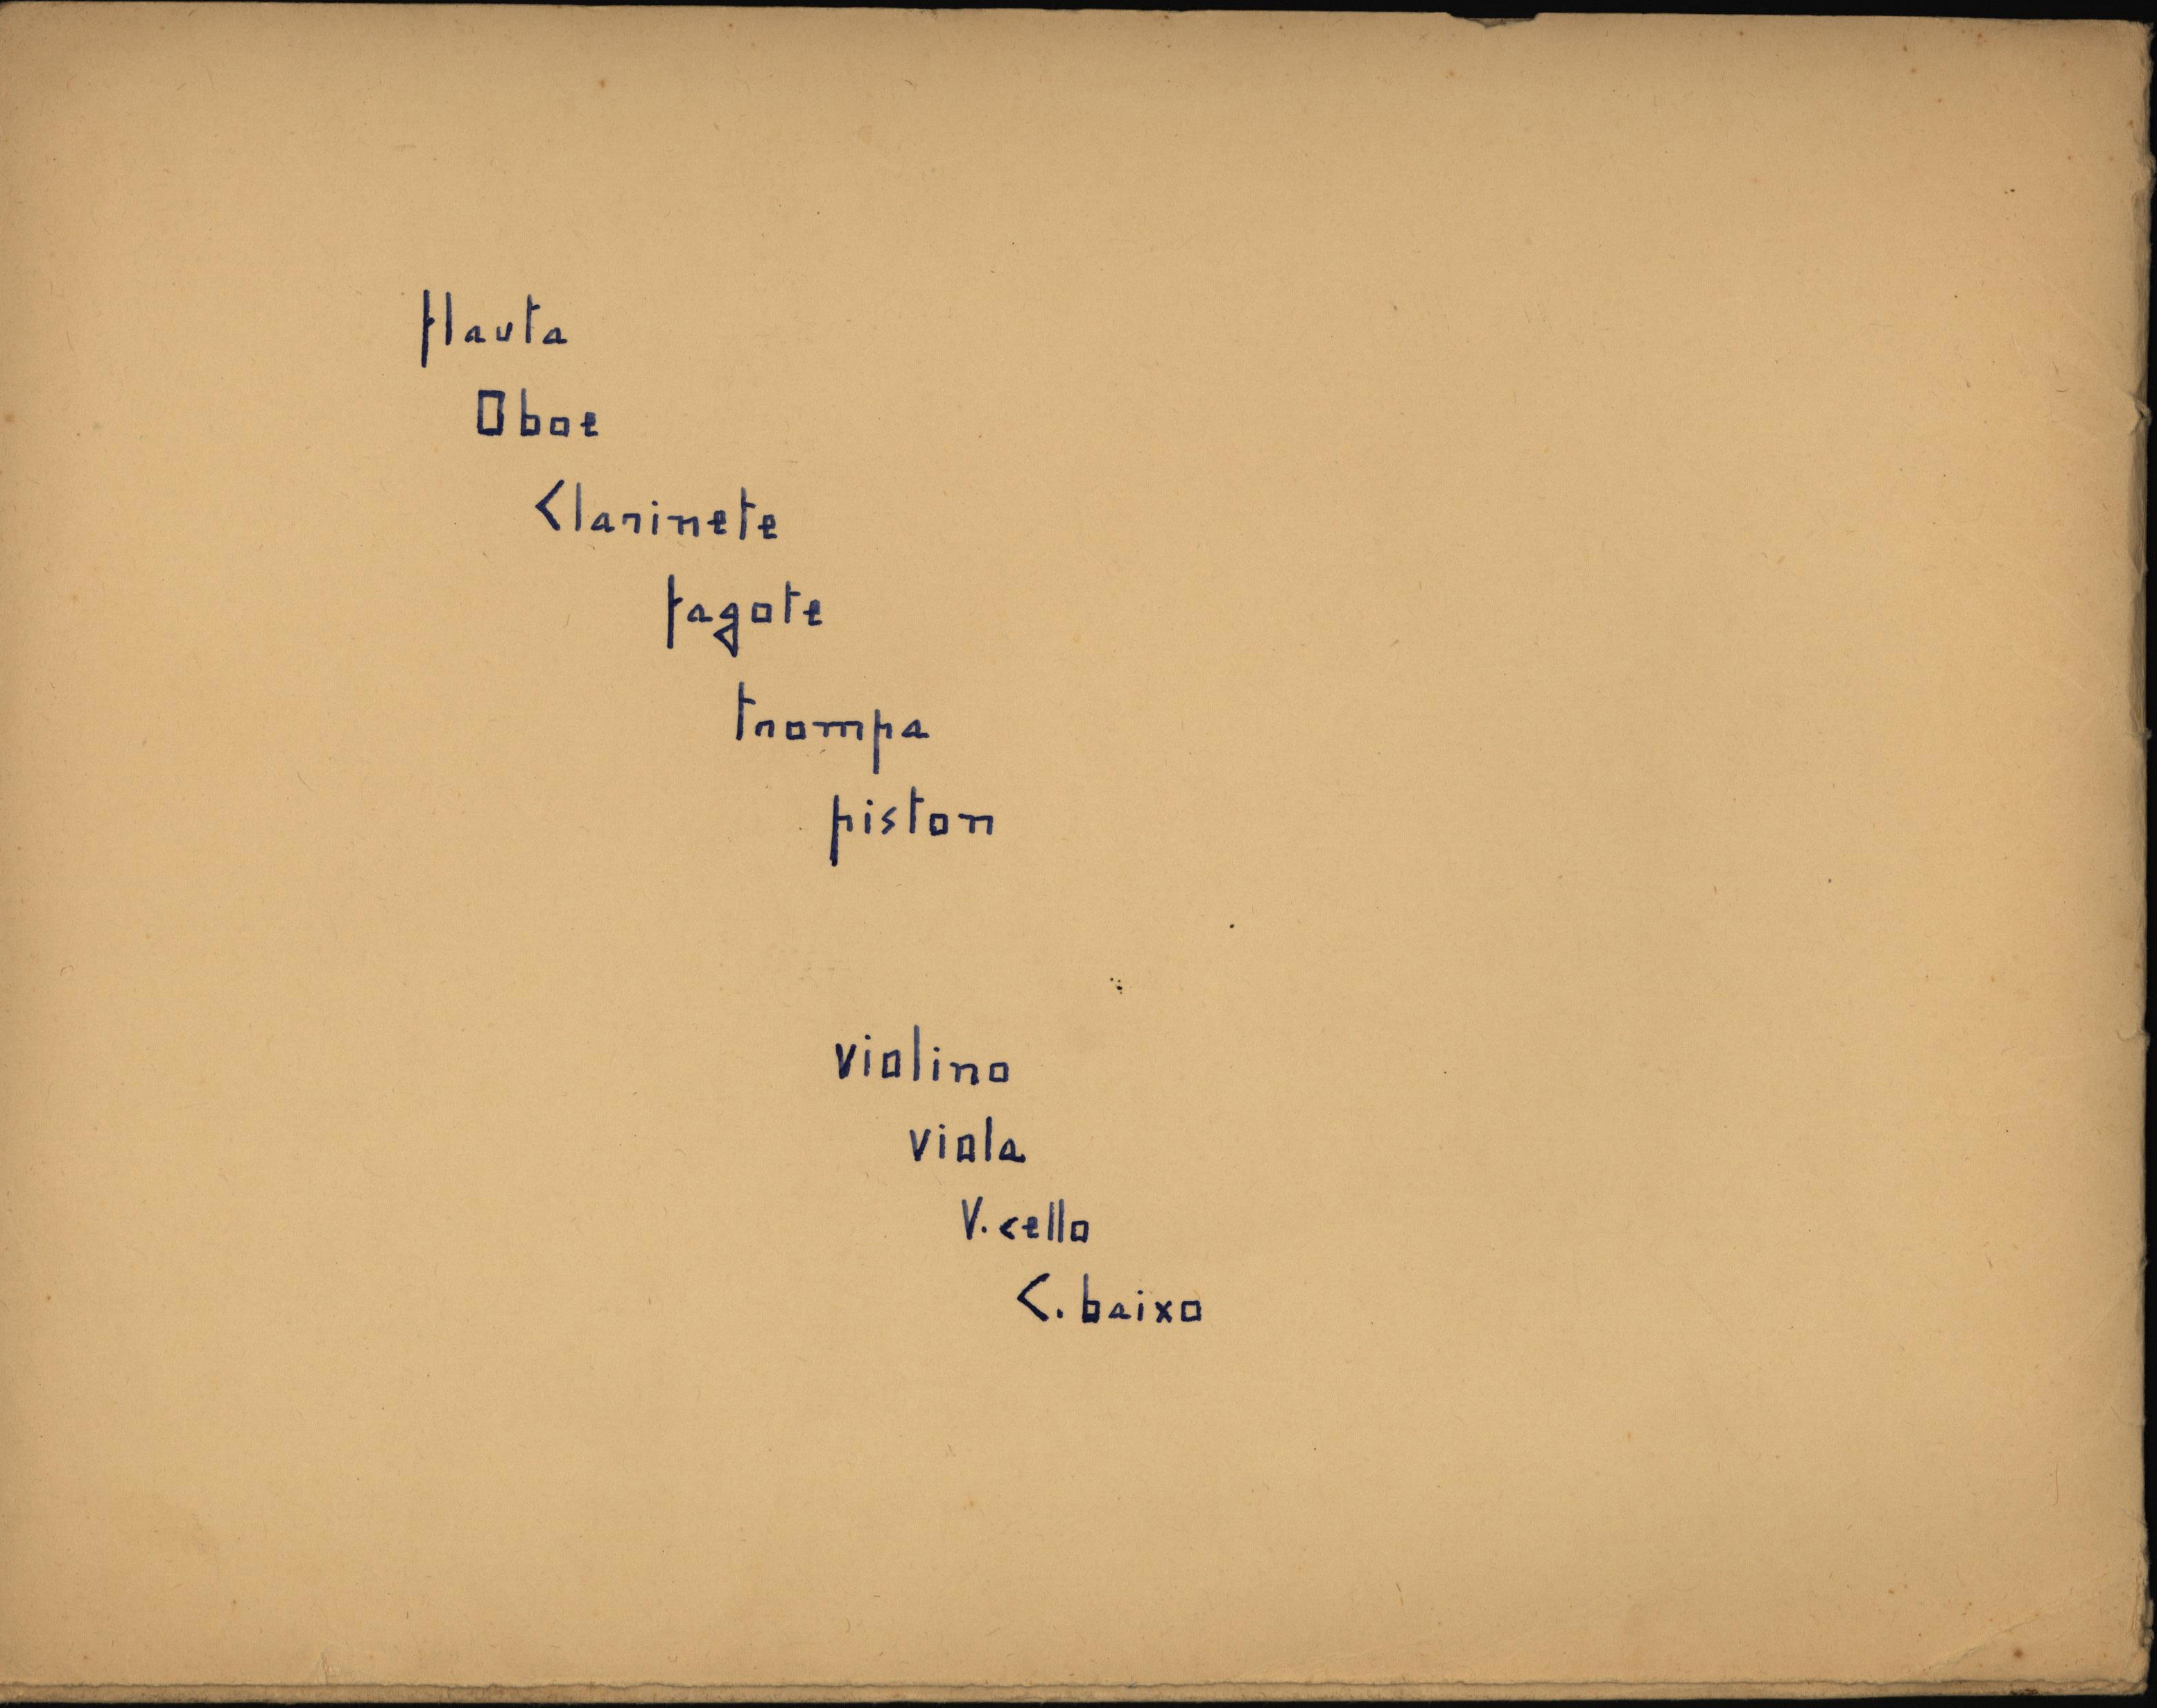 flauta
Oboe
Clarinete
fagote
trompa
piston
violino
viola
V.cello
C.baixo